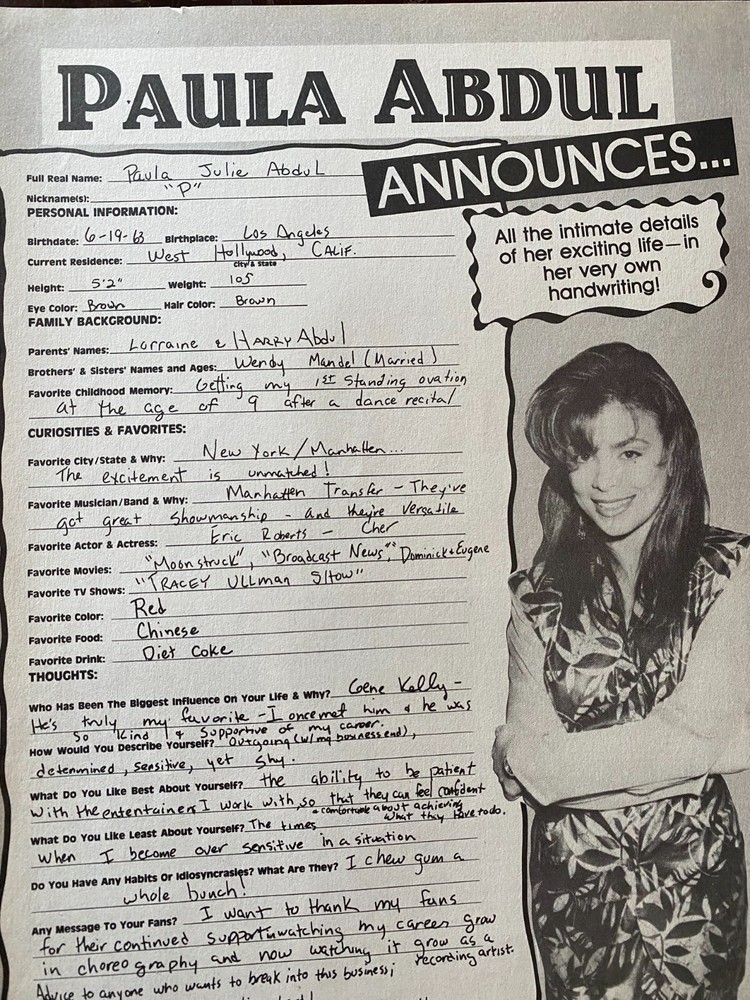 PAULA ABDUL
ANNOUNCES...
All the intimate details
of her exciting life—in
her very own
handwriting!
Full Real Name: Paula Julie Abdul
Nickname(s): "P"
PERSONAL INFORMATION:
Birthdate: 6-19-63 Birthplace: Los Angeles
Current Residence: West Hollywood, CALIF.
City & State
Height: 5'2" Weight: 105
Eye Color: Brown Hair Color: Brown
FAMILY BACKGROUND:
Parents' Names: Lorraine & HARRY Abdul
Brothers' & Sisters' Names and Ages: Wendy Mandel (Married)
Favorite Childhood Memory: Getting my 1ST Standing ovation
at the age of 9 after a dance recital
CURIOSITIES & FAVORITES:
Favorite City/State & Why: New York/Manhatten...
The excitement is unmatched!
Favorite Musician/Band & Why: Manhatten Transfer - They've
got great showmanship - and they're versatile
Favorite Actor & Actress: Eric Roberts - Cher
Favorite Movies: "Moonstruck", "Broadcast News", Dominick & Eugene
Favorite TV Shows: "TRACEY Ullman SHow"
Favorite Color: Red
Favorite Food: Chinese
Favorite Drink: Diet Coke
THOUGHTS:
Who Has Been The Biggest Influence On Your Life & Why? Gene Kelly -
He's truly my favorite - I once met him & he was
so kind & supportive of my career.
How Would You Describe Yourself? Outgoing (w/my business end),
determined, sensitive, yet shy.
What Do You Like Best About Yourself? the ability to be patient
with the entertainers I work with, so that they can feel confident
& comfortable about achieving
what they have to do.
What Do You Like Least About Yourself? The times
when I become over sensitive in a situation
Do You Have Any Habits Or Idiosyncrasies? What Are They? I chew gum a
whole bunch!
Any Message To Your Fans? I want to thank my fans
for their continued support in watching my career grow
in choreography and now watching it grow as a
recording artist.
Advice to anyone who wants to break into this business;